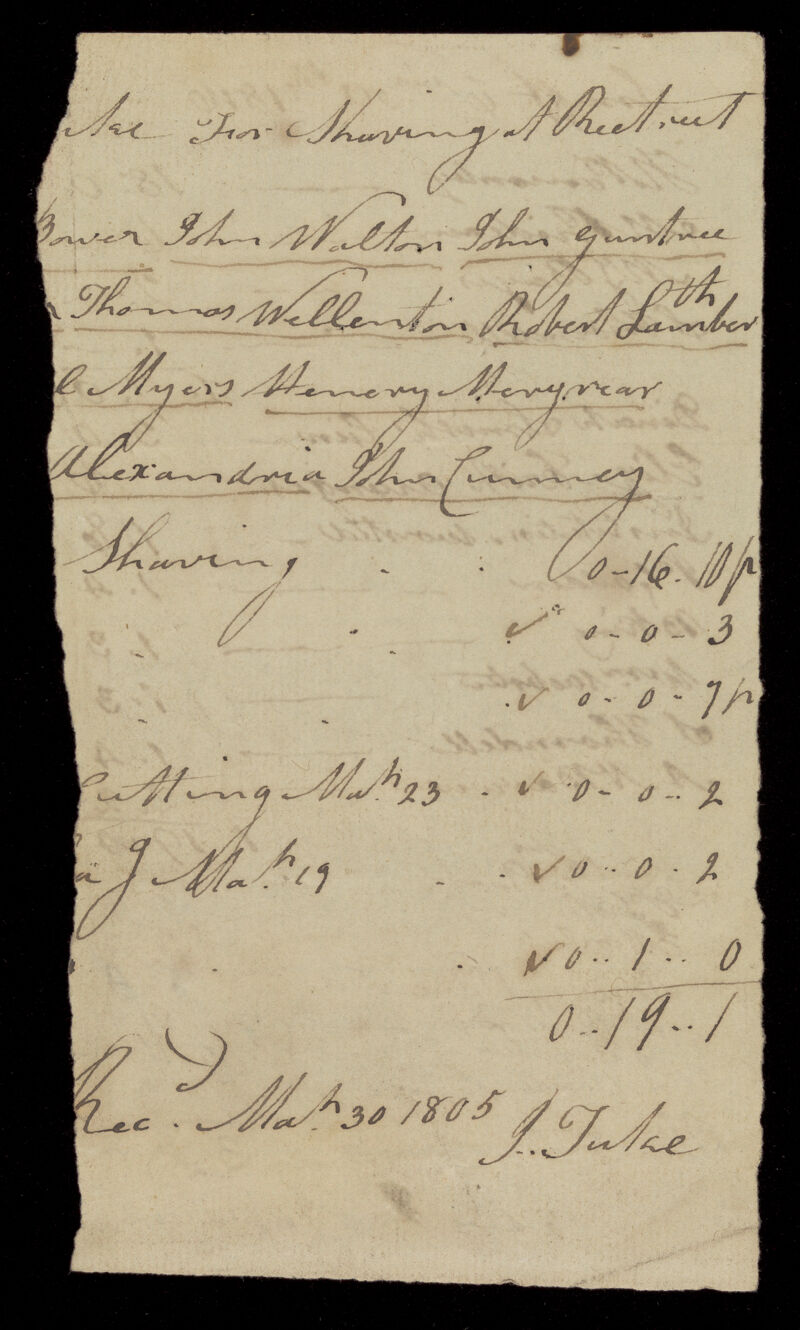 uke For Shaving at Reetreet
Bower John Walton John guntree
Thomas Wellenton Robert Lamberth
e Myers Henery Meryrear
Alexandria John Cumney
Shaving . . 0-16-10 p
. . . ✓ 0-0-3
. . . ✓ 0-0-7 p
Cutting Mah. 23 . ✓ 0-0..2
a g Mah. 19 . . ✓ 0..0.2
. . ✓ 0..1..0
0..19..1
Recd. Mah. 30 1805
J..Tuke